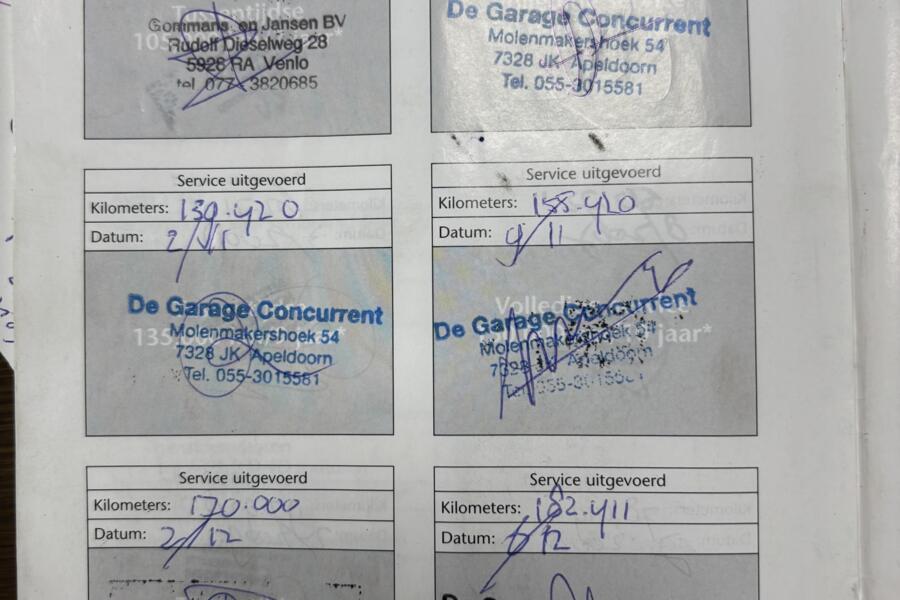 Gommans en Jansen BV
Rudolf Dieselweg 28
5928 RA Venlo
tel 077-3820685
De Garage Concurrent
Molenmakershoek 54
7328 JK Apeldoorn
Tel. 055-3015581
Service uitgevoerd
Kilometers: 139.420
Datum:
De Garage Concurrent
Molenmakershoek 54
7328 JK Apeldoorn
Tel. 055-3015581
Service uitgevoerd
Kilometers: 155.420
Datum: 9/11
Volledige
jaar*
De Garage Concurrent
Molenmakershoek 54
7328 JK Apeldoorn
Tel. 055-3015581
Service uitgevoerd
Kilometers: 170.000
Datum: 2/12
Service uitgevoerd
Kilometers: 182.411
Datum: 6/12